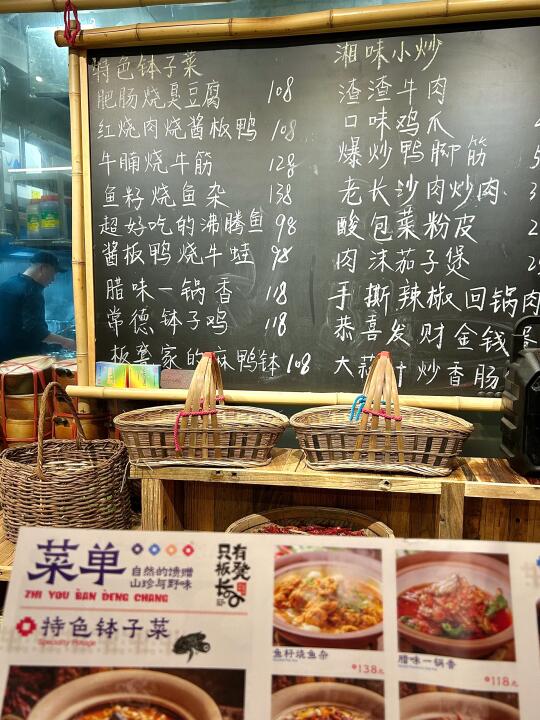 特色钵子菜
肥肠烧臭豆腐 108
红烧肉烧酱板鸭 108
牛腩烧牛筋 128
鱼籽烧鱼杂 138
超好吃的沸腾鱼 98
酱板鸭烧牛蛙 98
腊味一锅香 118
常德钵子鸡 118
家的麻鸭钵 108
湘味小炒
渣渣牛肉
口味鸡爪
爆炒鸭脚筋
老长沙肉炒肉
酸包菜粉皮
肉沫茄子煲
手撕辣椒回锅肉
恭喜发财金钱蛋
大蒜叶炒香肠
菜单
自然的馈赠
山珍与野味
ZHI YOU BAN DENG CHANG
特色钵子菜
只有板凳长
鱼籽烧鱼杂
138元
腊味一锅香
118元